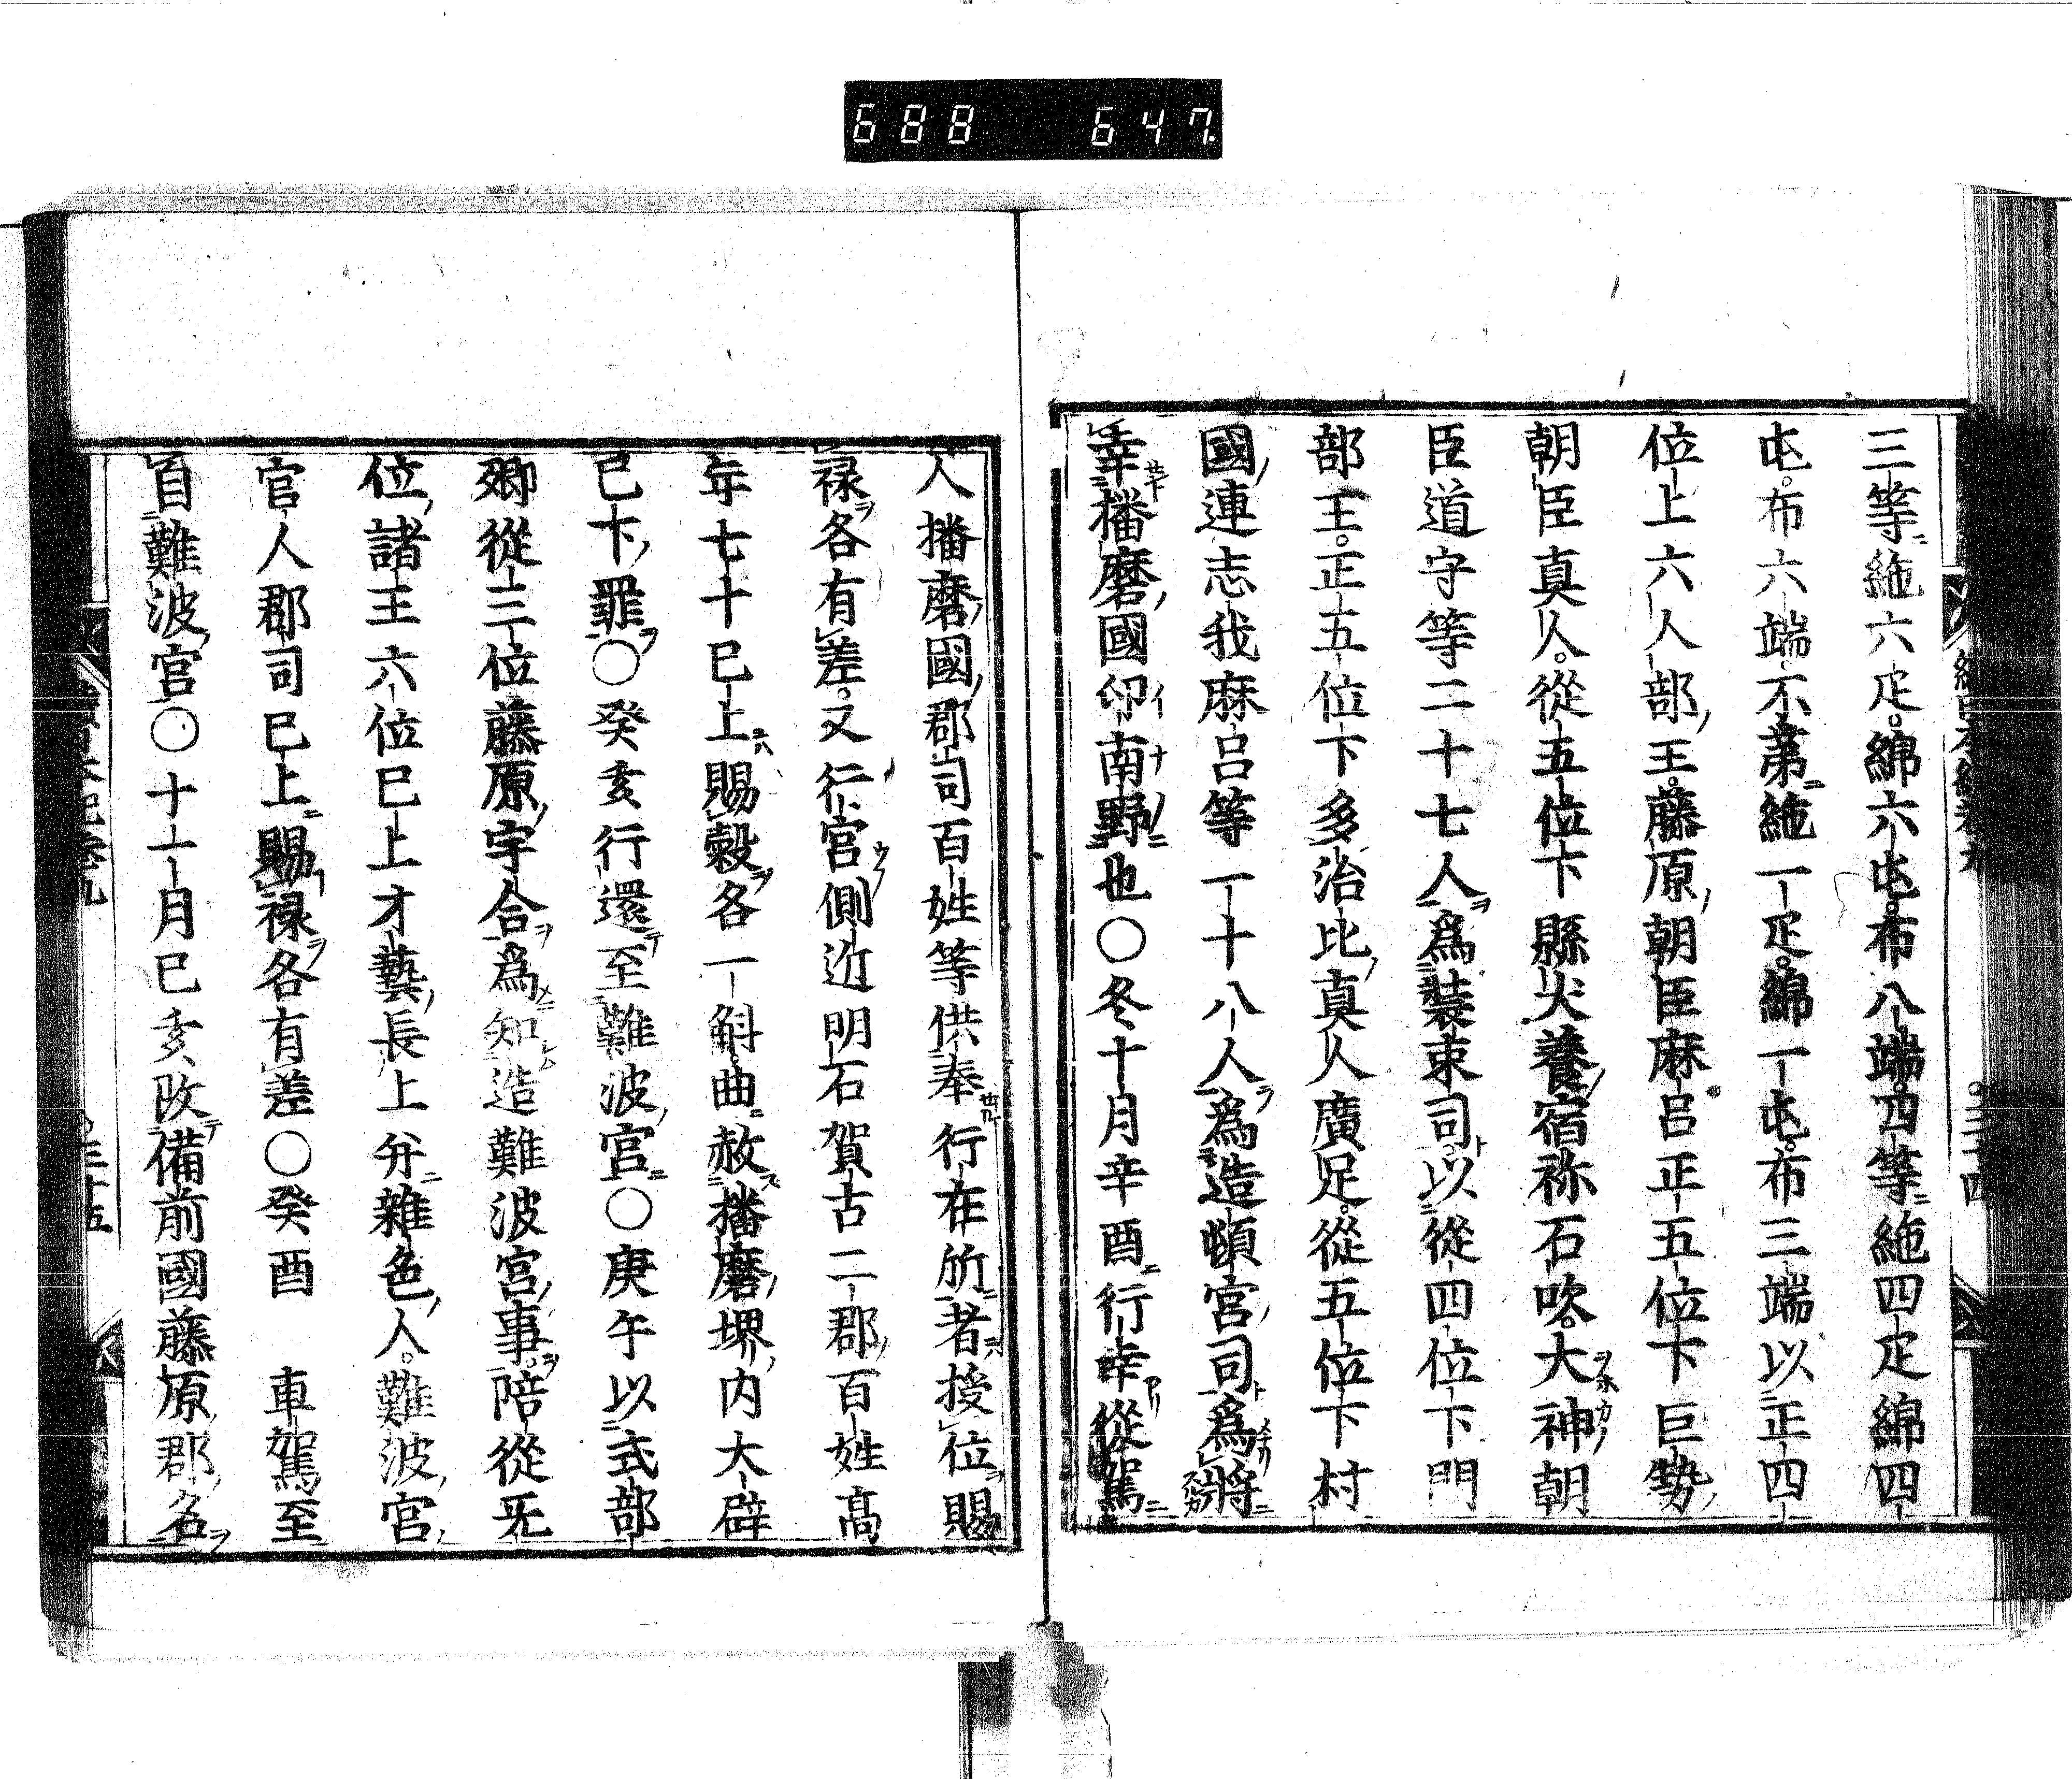 688 647.
三等絁六疋。綿六屯。布八端。四等絁四疋綿四
屯。布六端。不苐絁一疋。綿一屯。布三端以正四
位上六人部王。藤原朝臣麻呂正五位下巨勢
朝臣真人。從五位下縣犬養宿祢石吹。大神朝
臣道守等二十七人爲裝束司。以從四位下門
部王。正五位下多治比真人廣足。從五位下村
國連志我麻呂等一十八人爲造頓宮司爲將
幸播磨國印南野也〇冬十月辛酉行幸從駕
人播磨國郡司百姓等供奉行在所者授位賜
禄各有差。又行宮側近明石賀古二郡百姓高
年七十已上賜穀各一斛。曲赦播磨堺内大辟
已下罪〇癸亥行還至難波宮〇庚午以式部
卿從三位藤原宇合爲知造難波宮事。陪從无
位諸王六位已上才藝長上并雜色人。難波宮
官人郡司已上賜禄各有差〇癸酉　車駕至
自難波宮〇十一月己亥改備前國藤原郡名